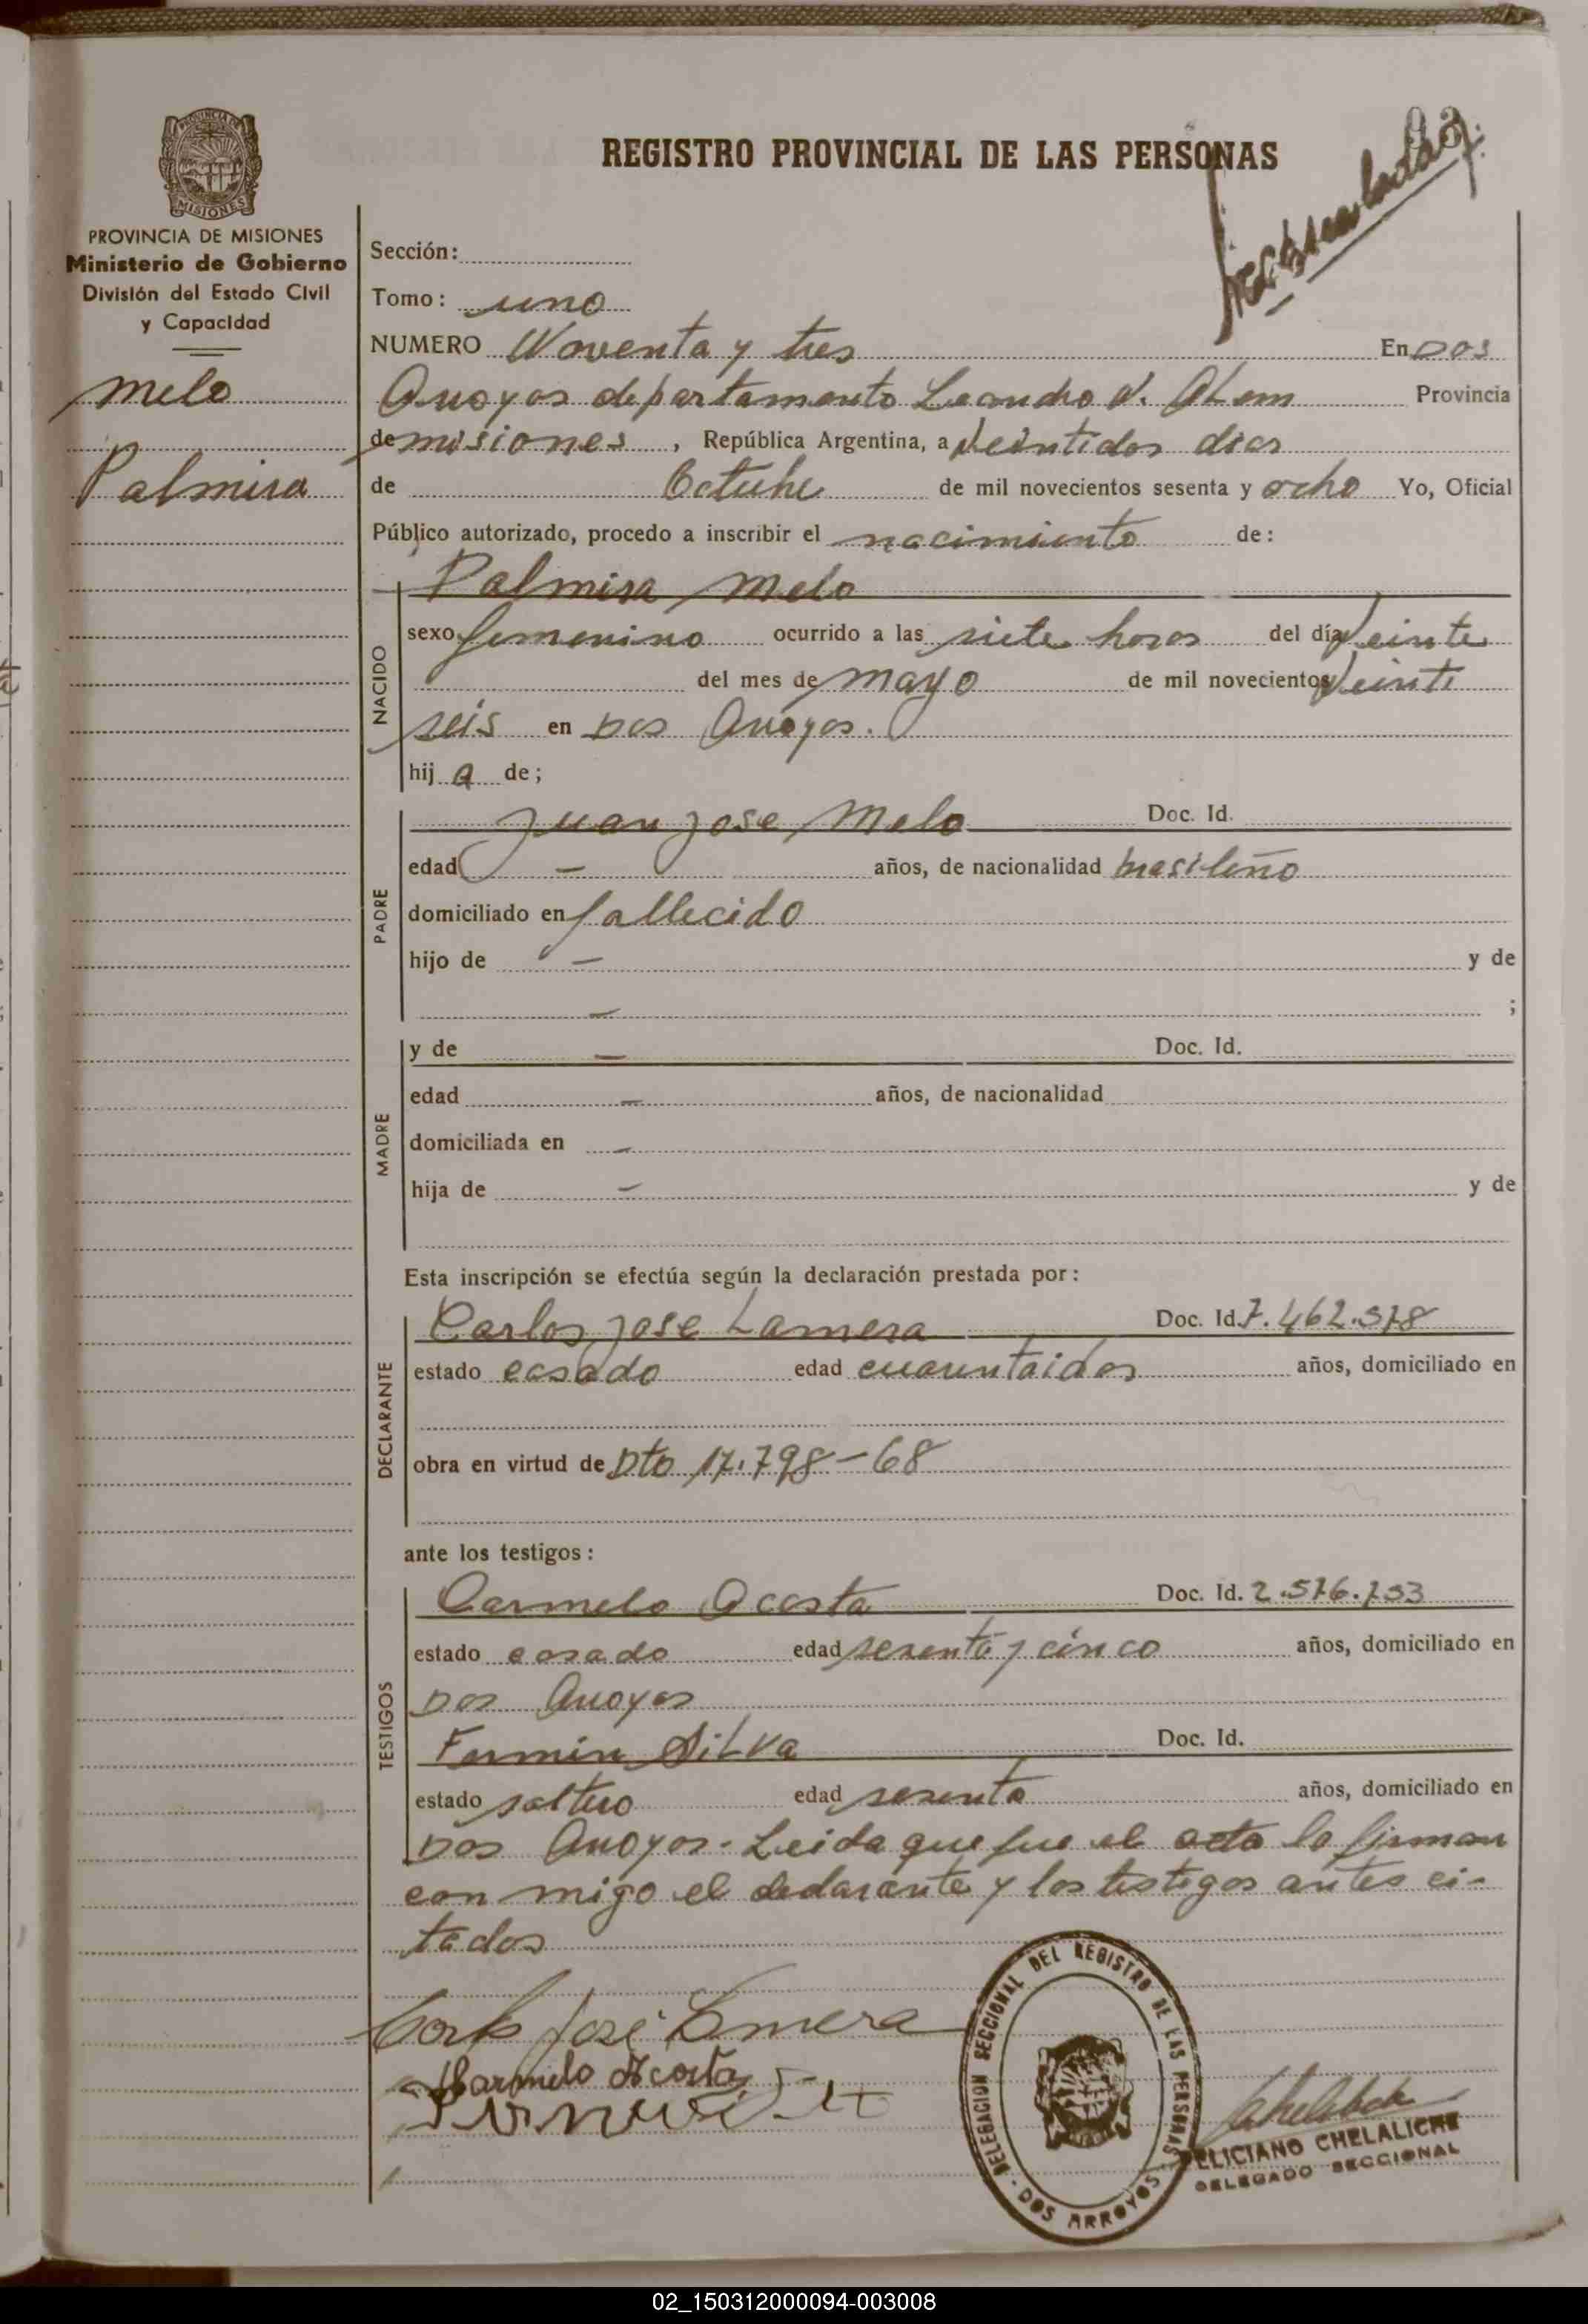 REGISTRO PROVINCIAL DE LAS PERSONAS
MISIONES
PROVINCIA DE MISIONES
Ministerio de Gobierno
División del Estado Civil
y Capacidad
Melo
Palmira
Sección:
Tomo: uno
NUMERO Noventa y tres En Dos
Arroyos departamento Leandro N. Alem Provincia
de misiones, República Argentina, a Veintidos dias
de Octubre de mil novecientos sesenta y ocho Yo, Oficial
Público autorizado, procedo a inscribir el nacimiento de:
NACIDO
Palmira Melo
sexo femenino ocurrido a las siete horas del día Veinte
del mes de mayo de mil novecientos Veinti
seis en Dos Arroyos.
hij a de;
PADRE
Juan Jose Melo Doc. Id.
edad - años, de nacionalidad brasileño
domiciliado en fallecido
hijo de - y de
- ;
MADRE
y de - Doc. Id.
edad - años, de nacionalidad
domiciliada en -
hija de - y de
Esta inscripción se efectúa según la declaración prestada por:
DECLARANTE
Carlos Jose Lamera Doc. Id. 7.462.578
estado casado edad cuarentaidos años, domiciliado en
obra en virtud de Dto 17.798-68
ante los testigos:
TESTIGOS
Carmelo Acosta Doc. Id. 2.576.753
estado casado edad sesenta y cinco años, domiciliado en
Dos Arroyos
Fermin Silva Doc. Id.
estado soltero edad sesenta años, domiciliado en
Dos Arroyos - Leida que fue el acta la firman
con migo el declarante y los testigos antes ci-
tados
Carlos José Lamera
Carmelo Acosta
DELEGACION SECCIONAL DEL REGISTRO DE LAS PERSONAS
DOS ARROYOS
FELICIANO CHELALICHE
DELEGADO SECCIONAL
02_150312000094-003008